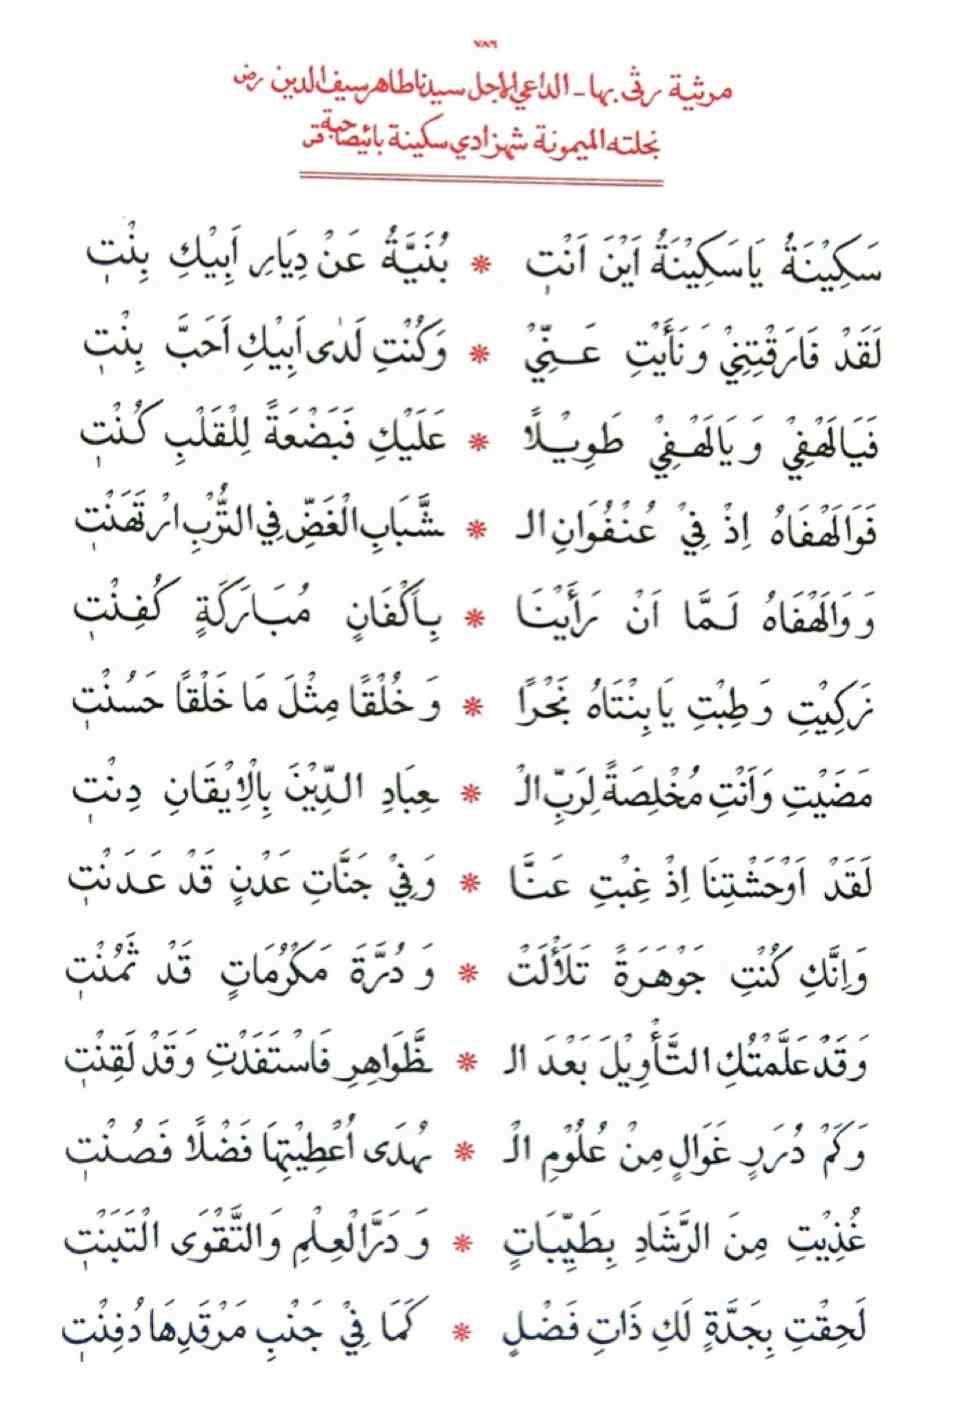 ٧٨٦
مرثية رثى بها - الداعي الاجل سيدنا طاهر سيف الدين رض
نجلته الميمونة شهزادي سكينة بائيصاحبة قس
سَكِيْنَةُ يَا سَكِيْنَةُ اَيْنَ اَنْتِ * بُنَيَّةُ عَنْ دِيَارِ اَبِيْكِ بِنْتِ
لَقَدْ فَارَقْتِنِيْ وَنَأَيْتِ عَنِّيْ * وَكُنْتِ لَدٰى اَبِيْكِ اَحَبَّ بِنْتِ
فَيَالَهْفِيْ وَيَالَهْفِيْ طَوِيْلًا * عَلَيْكِ فَبَضْعَةً لِلْقَلْبِ كُنْتِ
فَوَالَهْفَاهُ اِذْ فِيْ عُنْفُوَانِ الـ * ـشَّبَابِ الْغَضِّ فِي التُّرْبِ ارْتَهَنْتِ
وَوَالَهْفَاهُ لَمَّا اَنْ رَأَيْنَا * بِأَكْفَانٍ مُبَارَكَةٍ كُفِنْتِ
زَكِيْتِ وَطِبْتِ يَا بِنْتَاهُ نَجْرًا * وَخُلْقًا مِثْلَ مَا خَلْقًا حَسُنْتِ
مَضَيْتِ وَاَنْتِ مُخْلِصَةً لِرَبِّ الْـ * ـعِبَادِ الدِّيْنَ بِالْاِيْقَانِ دِنْتِ
لَقَدْ اَوْحَشْتِنَا اِذْ غِبْتِ عَنَّا * وَفِيْ جَنَّاتِ عَدْنٍ قَدْ عَدَنْتِ
وَاِنَّكِ كُنْتِ جَوْهَرَةً تَلَأْلَتْ * وَدُرَّةَ مَكْرُمَاتٍ قَدْ ثَمُنْتِ
وَقَدْ عَلَّمْتُكِ التَّأْوِيْلَ بَعْدَ الـ * ـظَّوَاهِرِ فَاسْتَفَدْتِ وَقَدْ لَقِنْتِ
وَكَمْ دُرَرٍ غَوَالٍ مِنْ عُلُوْمِ الْـ * ـهُدَى اُعْطِيْتِهَا فَضْلًا فَصُنْتِ
غُذِيْتِ مِنَ الرَّشَادِ بِطَيِّبَاتٍ * وَدَرَّ الْعِلْمِ وَالتَّقْوَى الْتَبَنْتِ
لَحِقْتِ بِجَدَّةٍ لَكِ ذَاتِ فَضْلٍ * كَمَا فِيْ جَنْبِ مَرْقَدِهَا دُفِنْتِ